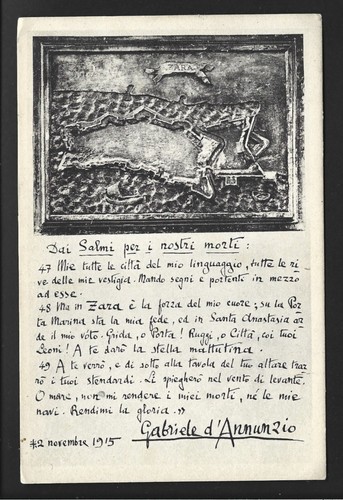 ZARA
Dai Salmi per i nostri morti:
47 Mie tutte le città del mio linguaggio, tutte le ri-
ve delle mie vestigia. Mando segni e portenti in mezzo
ad esse.
48 Ma in Zara è la forza del mio cuore; su la Por-
ta Marina sta la mia fede, ed in Santa Anastasia ar-
de il mio voto. Grida, o Porta! Ruggi, o Città, coi tuoi
Leoni! A te darò la stella mattutina.
49 A te verrò, e di sotto alla tavola del tuo altare trar-
rò i tuoi stendardi. Li spiegherò nel vento di levante.
O mare, non mi rendere i miei morti, né le mie
navi. Rendimi la gloria.»
Gabriele d'Annunzio
2 novembre 1915